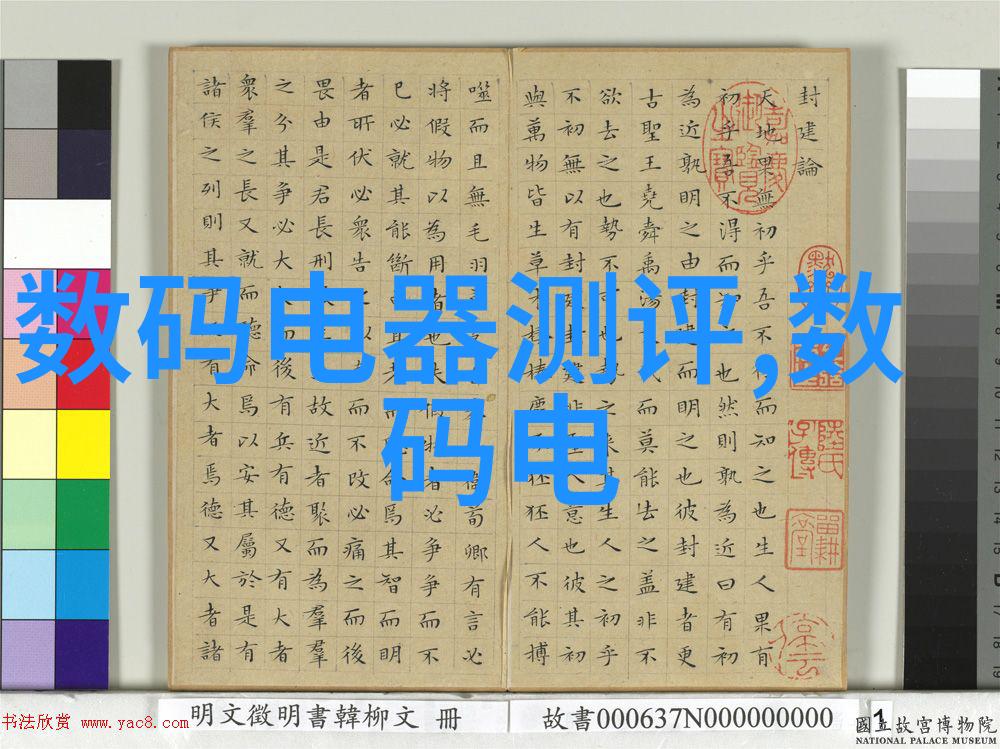 数码电器测评,数
码电
封建論
天地果無初乎吾不得而知之也生人果有
初乎吾不得而知之也然則孰為近曰有初
為近孰明之由封建而明之也彼封建者更
古聖王堯舜禹湯而莫能去之蓋非不
欲去之也勢不可也勢之來其生人之初乎
不初無以有封建封建非人意也彼其初
與萬物皆生草木榛榛鹿豕狉狉人不能搏
噬而且無毛羽衛荀卿有言必
將假物以為用者也夫假物者必爭爭而不
已必就其能斷命焉其智而明
者所伏必眾告之以而不改必痛之而後
畏由是君長刑故近者聚而為羣
之分其爭必大而後有兵有德又有大者
眾羣之長又就而聽命焉以安其屬於是有
諸侯之列則其爭有大者焉德又大者諸
嘉慶御覽之寶
明文徵明書韓柳文 冊
故書000637N000000000
1
國立故宮博物院
NATIONAL PALACE MUSEUM
书法欣赏 www.yac8.com